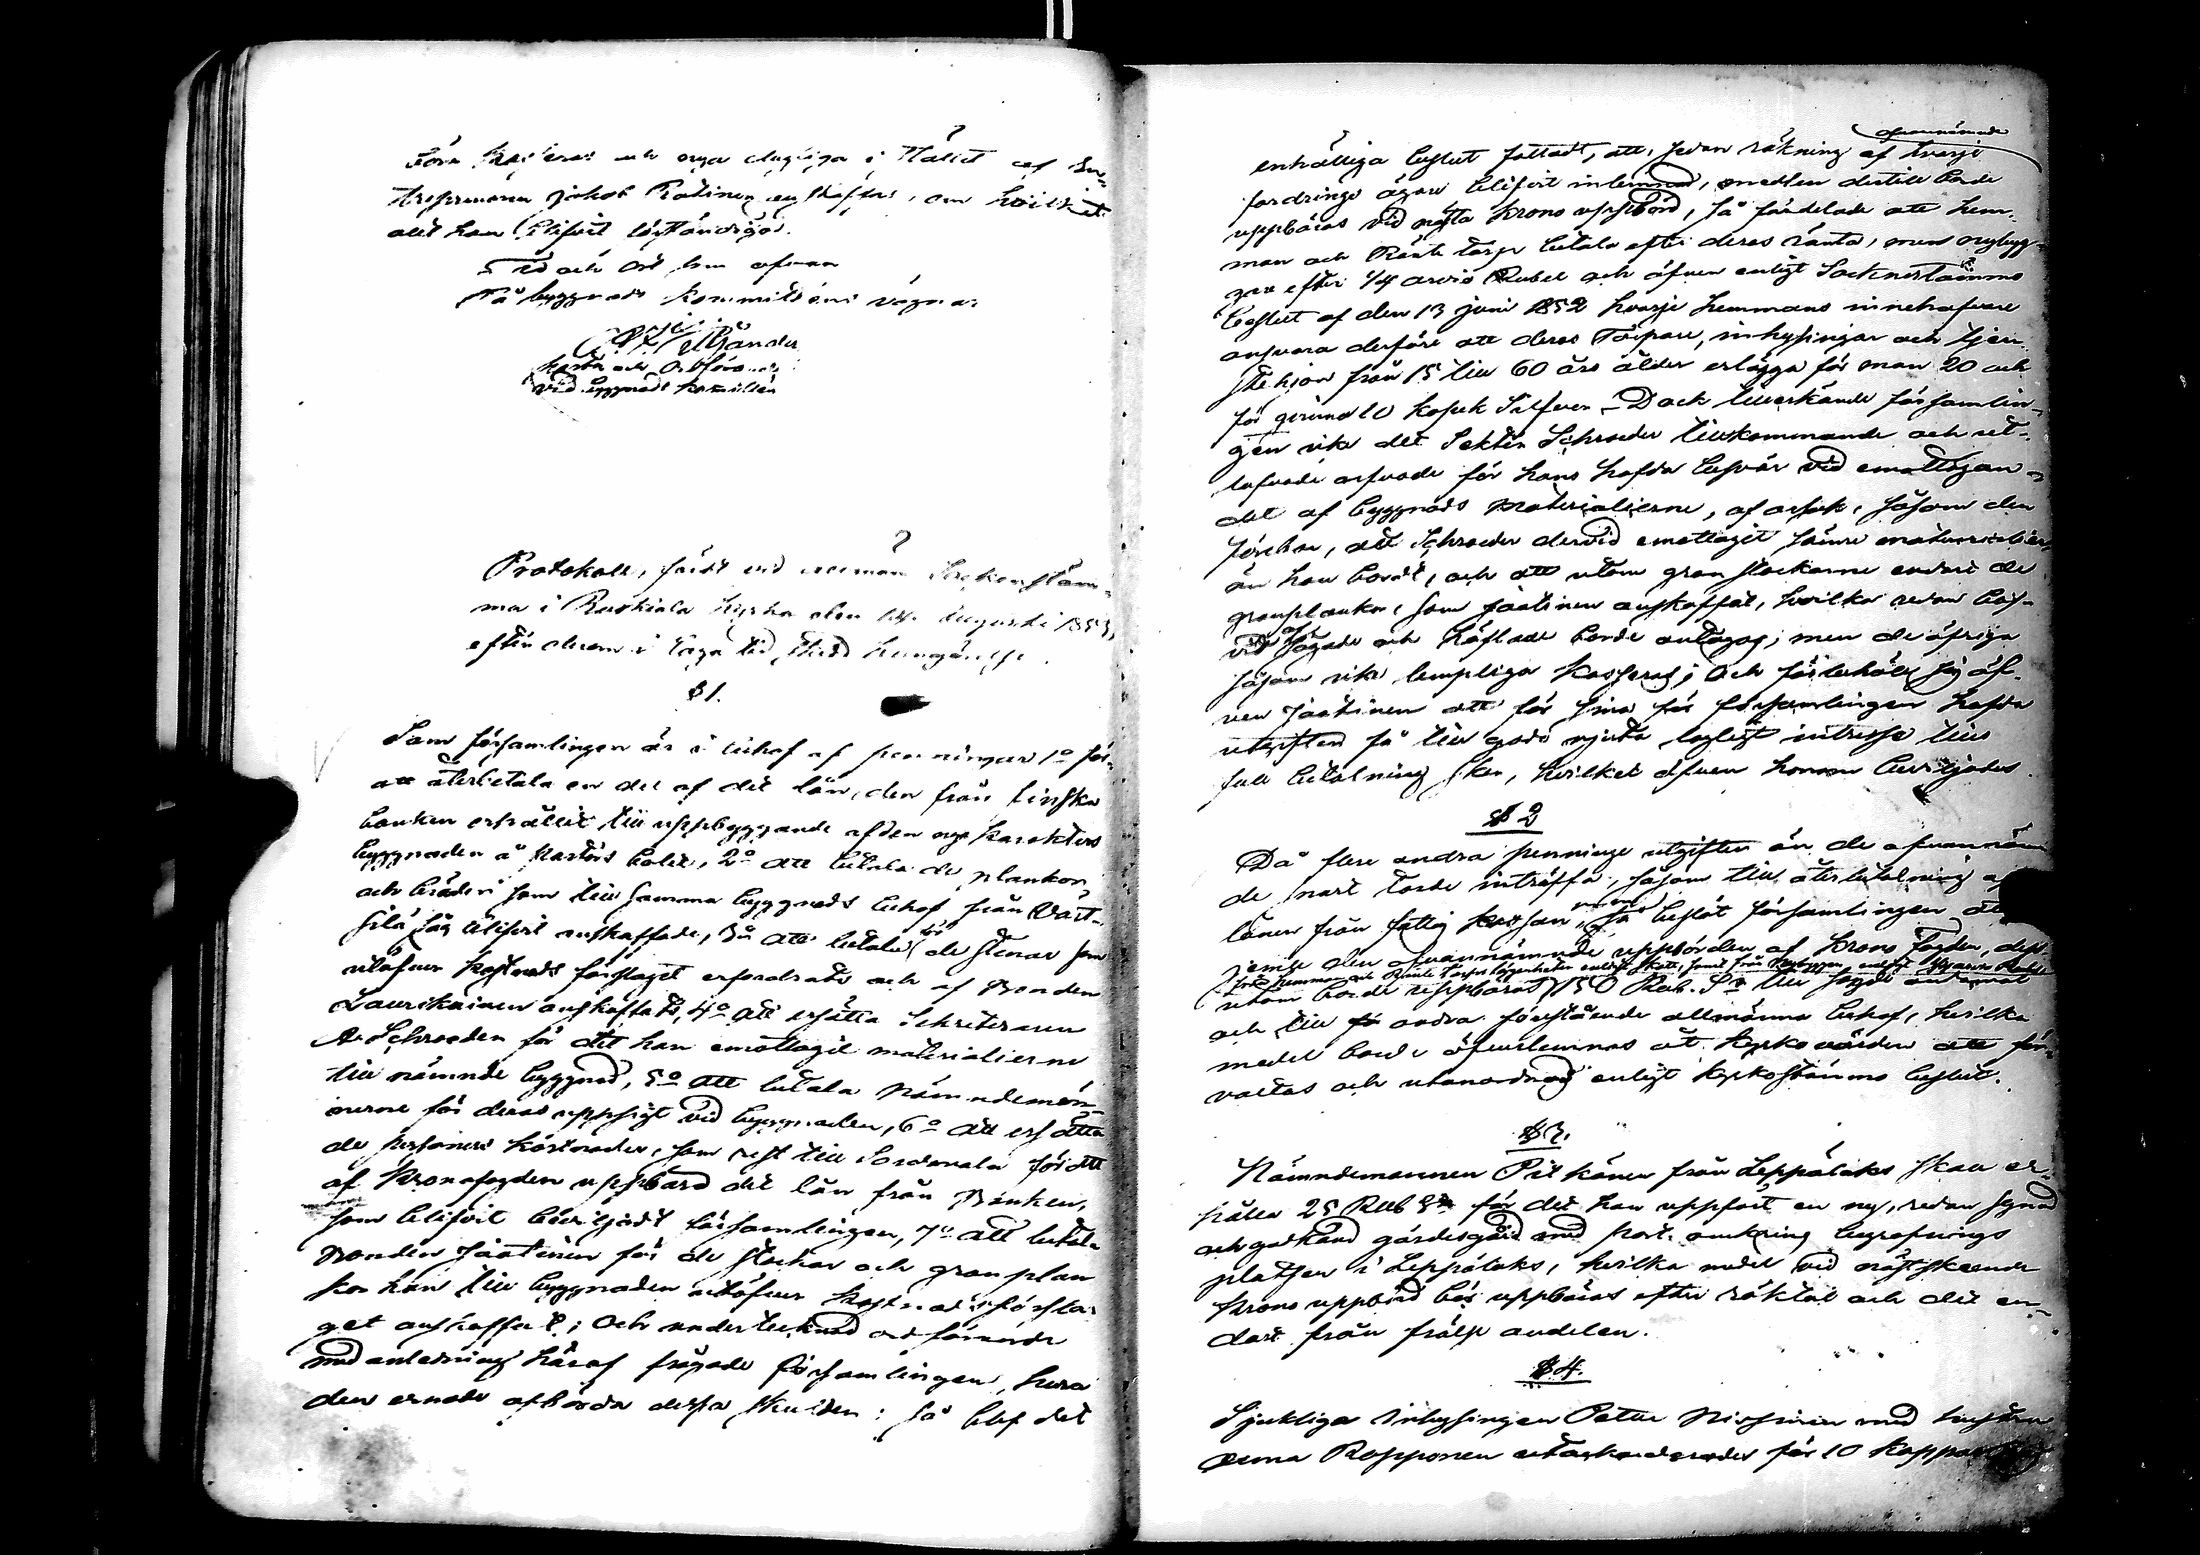 böra kasseras och nya dugliga i stället af En-
treprenören Jakob anskaffas, om hvilket
allt han blifvit
Tid och ort som ofvan
På byggnads Kommitténs vägnar

vid byggnads Komittén
Protokoll, fördt vid allmän Sockenstäm-
ma i Ruskiala Kyrka den 14 Augusti 1853,
efter derom i laga tid skedd kungörelse.
§ 1.
Som församlingen är i behof af penningar 1o för
att återbetala en del af det lån, den från Finska
banken erhållit till uppbyggande af den nya Karakters
byggnaden å Pastors bolet, 2o att betala de plankor
och bräder som till samma byggnads behof från Värt-
silä såg blifvit anskaffade, 3o att betala för de stenar som
utöfver kostnads förslaget erfordrats och af Bonden
Laurikainen anskaffats, 4o att ersätta Sekreteraren
A. Schroeder för det han emottagit materialierne
till nämnde byggnad, 5o att betala Nämndemän-
nerne för deras uppsigt vid byggnaden, 6o att ersätta
de personers kostnader, som rest till Sordavala för att
af Kronofogden uppbära det lån från Banken,
som blifvit beviljadt församlingen, 7o att betala
Bonden Jaatinen för de stockar och granplan
kor han till byggnaden utöfver kostnadsförsla-
get anskaffat; och undertecknad ordförande
med anledning häraf frågade församlingen, huru
den ernade afbörda dessa skulder; så blef det
enhälliga beslut fattadt, att, sedan räkning af hvarje ofvannämnde
fordrings ägare blifvit inlemnad, medlen dertill borde
uppbäras vid nästa Krono uppbörd, så fördelade att hem-
man och Räntetorp betala efter deras ränta, men nybygg-
gen efter 1/4 arvio Rubel och äfven enligt Sockenstämmo
beslut af den 13 Juni 1852 hvarje hemmans innehafvare
ansvara derföre att deras Torpare, inhysingar och tjen-
stehjon från 15 till 60 års ålder erlägga för man 20 och
för qvinna 10 kopek Silfver. Dock tillerkände församlin-
gen icke det Sekter Schroeder tillkommande och ut-
lofvade arfvode för hans hafda besvär vid emottagan-
det af byggnads materialierne, af orsak, såsom den
förebar, att Schroeder dervid emottagit sämre materialier,
än han bordt, och att utom granstockarne endast de
granplankor, som Jaatinen anskaffat, hvilka redan blif-
vit sågade och höflade borde antagas, men de öfriga
såsom icke lempliga kasseras; Och förbehöll sig äf-
ven Jaatinen att för sina för församlingen hafda
utgifter få till godo njuta lagligt intresse tills
full betalning sker, hvilket äfven honom beviljades.
§ 2
Då flere andra penninge utgifter än de ofvannämn
de snart torde inträffa, såsom till återbetalning af
lånen från fattig kassan, så beslöt församlingen att
jemte den ofvannämnde uppbörden af Krono Fogden, dess-
utom borde uppbäras 150 Rub. Sr till
och till andra förestående allmänna behof, hvilka
medel borde öfverlemnas åt Kyrkovärden att för-
valtas och utanordnas enligt Kyrkostämmo beslut.
§ 3.
Nämndemannen Pitkänen från Leppälaks skall er-
hålla 25 Rub Sr för det han uppfört en ny, redan synad
och godkänd gärdesgård med port omkring begrafnings
platsen i Leppälaks, hvilka medel vid nästskeende
Krono uppbörd bör uppbäras efter röktal och det en-
dast från frälse andelen.
§ 4.
Sjukliga Inhysingen Petter Nissinen med hustru
Anna Ropponen utackorderades för 10 kappar